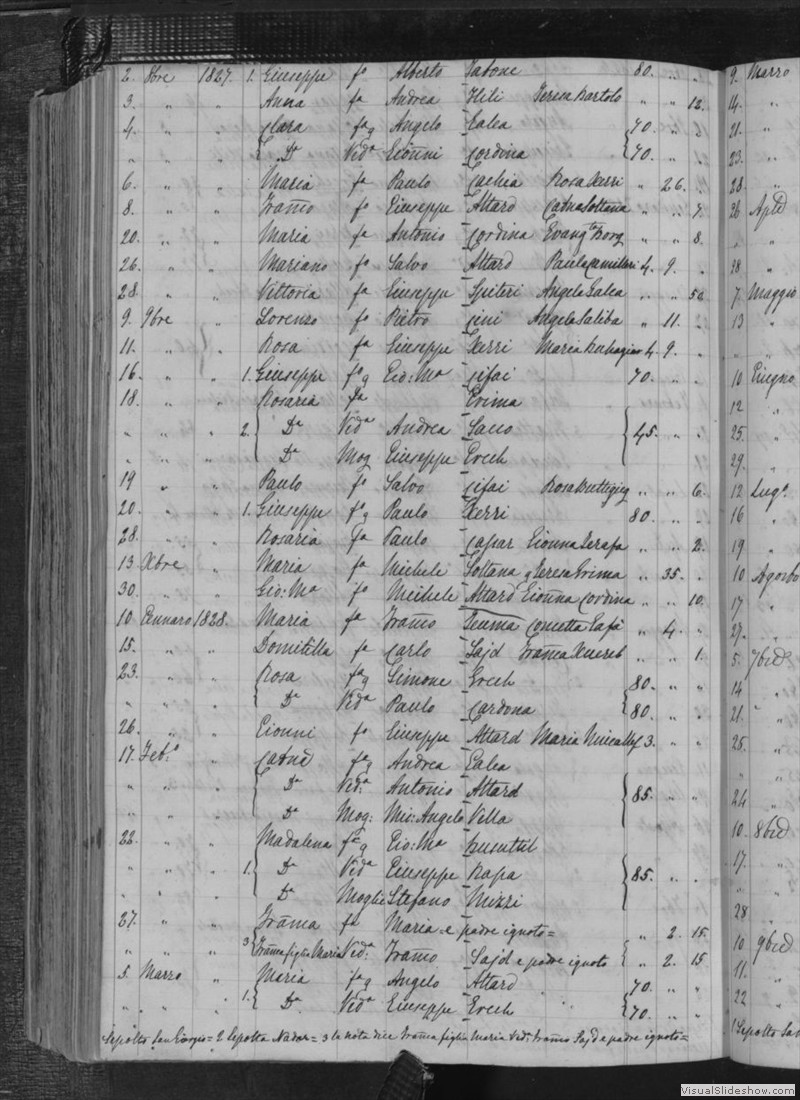 2. 8bre 1827. 1. Giuseppe fo Alberto Vatone 80. " "
3. " " Anna fa Andrea Hili Teresa Bartolo " " 12.
4. " " Clara fa q Angelo Galea 70. " "
" " " Da Vida Gionni Cordina 70. " "
6. " " Maria fa Paulo Cachia Rosa Xerri " 26. "
8. " " Franco fo Giuseppe Attard Catna Soltana " " 7.
20. " " Maria fa Antonio Cordina Evanga Borg " " 8.
26. " " Mariano fo Salvo Attard Paula Camilleri 4. 9. "
28. " " Vittoria fa Giuseppe Spiteri Angela Galea " " 5
9. 9bre " Lorenzo fo Pietro Cini Angela Saliba " 11. "
11. " " Rosa fa Giuseppe Xerri Maria 4. 9. "
16. " " 1. Giuseppe fo q Gio: Ma Cifai 70. " "
18. " " Rosaria fa Grima
" " " 2. Da Vida Andrea Sacco 45. " "
" " " Da Mog Giuseppe Grech
19 " " Paulo fo Salvo Cifai Rosa Buttigieg " " 6.
20. " " 1. Giuseppe fo q Paulo Xerri 80. " "
28. " " Rosaria fa Paulo Caf̄ar Gionna Serafa " " 2.
13 Xbre " Maria fa Michele Soltana q Teresa Grima " 35. "
30. " " Gio: Ma fo Michele Attard Gionna Cordina " " 10.
10 Gennaro 1828. Maria fa Franco Teuma Concetta Safi " 4. "
15. " " Domitilla fa Carlo Sajd Franca Xuereb " " 1.
23. " " Rosa fa q Simone Grech 80. " "
" " " Da Vida Paulo Cardona 80. " "
26. " " Gionni fo Giuseppe Attard Maria Micallef 3. " "
17. Febo " Catne fa q Andrea Galea
" " " Da Vida Antonio Attard 85. " "
" " " Da Mog: Mic: Angelo Vella
22. " " Madalena fa q Gio: Ma Busuttil
" " " 1. Da Vida Giuseppe Rapa 85. " "
" " " Da Moglie Stefano Mizzi
27. " " Franca fa Maria e padre ignoto = " 2. 15.
" " " 3 Franca figlia Maria Vida Franco Sajd e padre ignoto " 2. 15
5. Marzo " Maria fa q Angelo Attard 70. " "
" " " 1. Da Vida Giuseppe Grech 70. " "
1 Sepolto San Giorgio = 2 Sepolta Nadur = 3 la nota dice Franca figlia Maria Vida Franco Sajd e padre ignoto =
9. Marzo
14. "
21. "
23. "
28. "
26 Aple
" "
28 "
7. Maggio
13 "
" "
10 Giugno
12 "
25. "
29. "
12 Lugo
16 "
19 "
10 Agosto
17 "
27. "
5. 7bre
14 "
21. "
25. "
" "
24 "
10. 8bre
17. "
" "
28 "
10 9bre
11. "
22 "
1 Sepolto San
VisualSlideshow.com